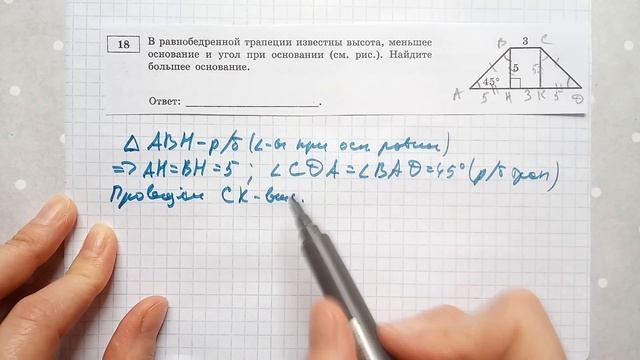 18 В равнобедренной трапеции известны высота, меньшее
основание и угол при основании (см. рис.). Найдите
большее основание.
Ответ: ____________________.
B 3 C
5 5
45°
A 5 H 3 K 5 D
△ ABH – р/б (∠-ы при осн равны)
=> AH = BH = 5 ; ∠CDA = ∠BAD = 45° (р/б трап)
Проведём CK – выс.